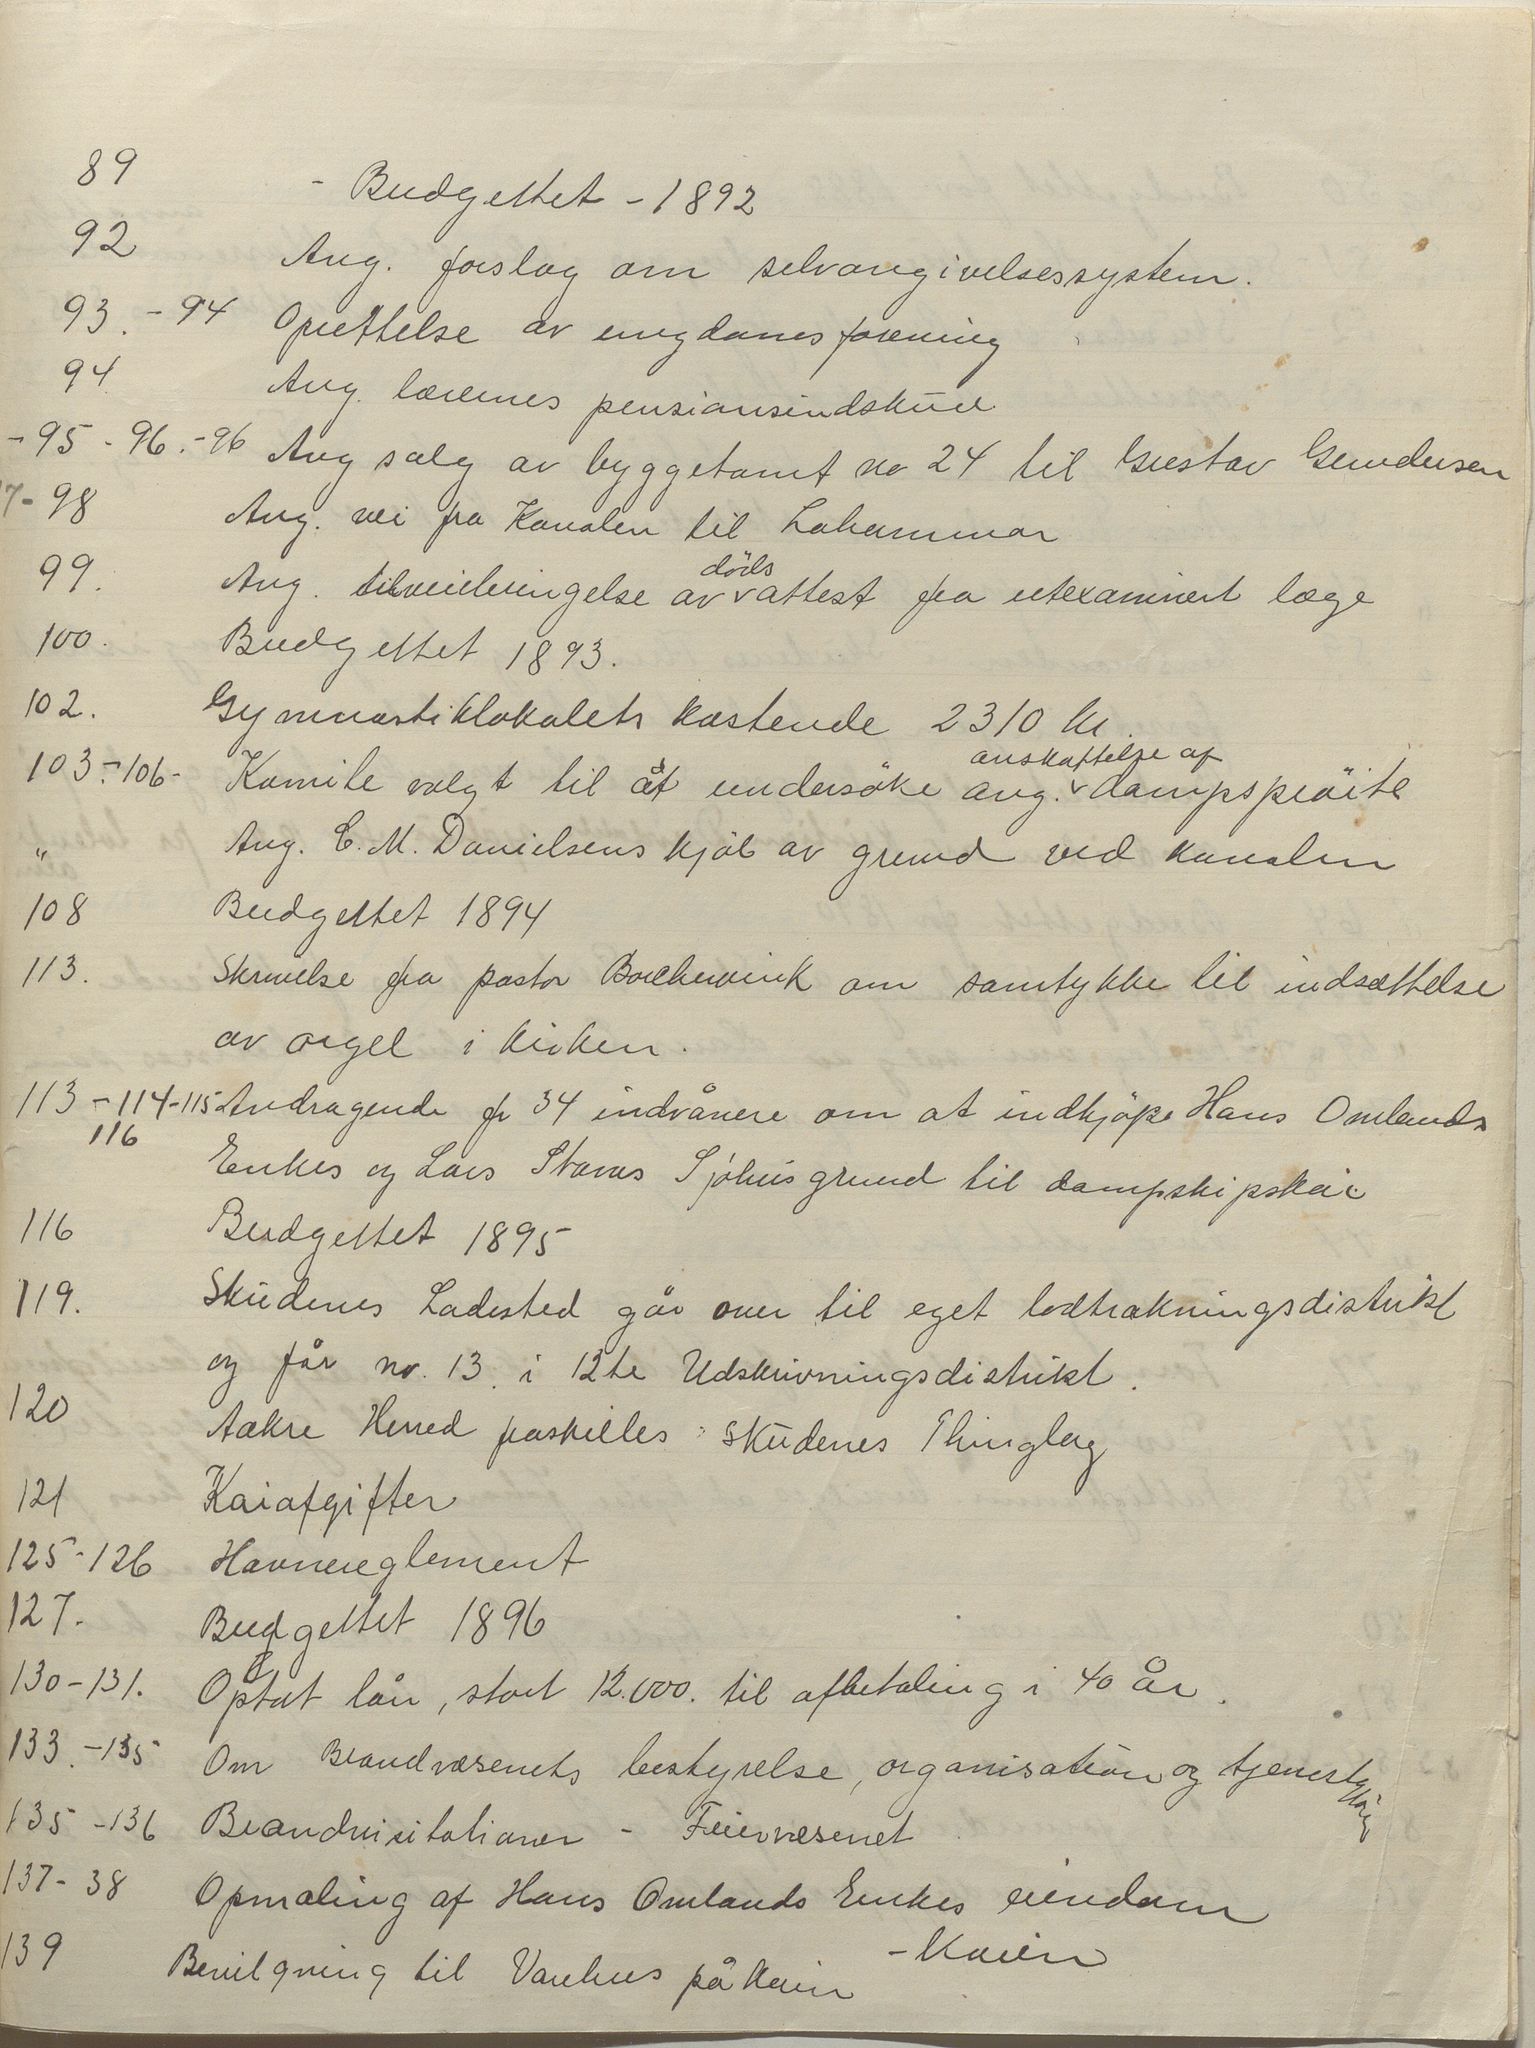 89 - Budgettet - 1892
92 Ang. forslag om selvangivelsessystem.
93. - 94 Oprettelse av ungdomsforening
94. Ang. lærernes pensionsindskud
- 95 - 96. - 96 Ang salg av byggetomt no 24 til Gustav Gundersen
7 - 98 Ang. vei fra Kanalen til Lahammar
døds
99. Ang. tilveiebringelse av attest fra utexaminert læge
100. Budgettet 1893.
102. Gymnastiklokalets kostende 2310 kr.
anskaffelse af
103. - 106 - Komite valgt til åt undersöke ang. dampspröite
" Ang. C. M. Danielsens kjöb av grund ved kanalen
108 Budgettet 1894
113. Skrivelse fra pastor Borchervink om samtykke til indsættelse
av orgel i kirken.
113 - 114 - 115 Andragende fr 34 indvånere om at indkjöpe Hans Omlands
116
Enkes og Lars Stavas Sjöhusgrund til dampskipskai
116 Budgettet 1895
119. Skudenes Ladested går over til eget lodtrækningsdistrikt
og får no. 13. i 12te Udskrivningsdistrikt.
120 Aakre Herred fraskilles Skudenes Thinglag
121 Kaiafgifter
125 - 126 Havnereglement
127. Budgettet 1896
130 - 131. Optat lån, stort 12.000. til afbetaling i 40 år.
133. - 135 Om Brandvæsenets bestyrelse, organisation og tjeneste
135 - 136 Brandvisitationer - Feiervæsenet
137 - 38 Opmaling af Hans Omlands Enkes eiendom
- Kaien
139 Bevilgning til Varehus på kaien